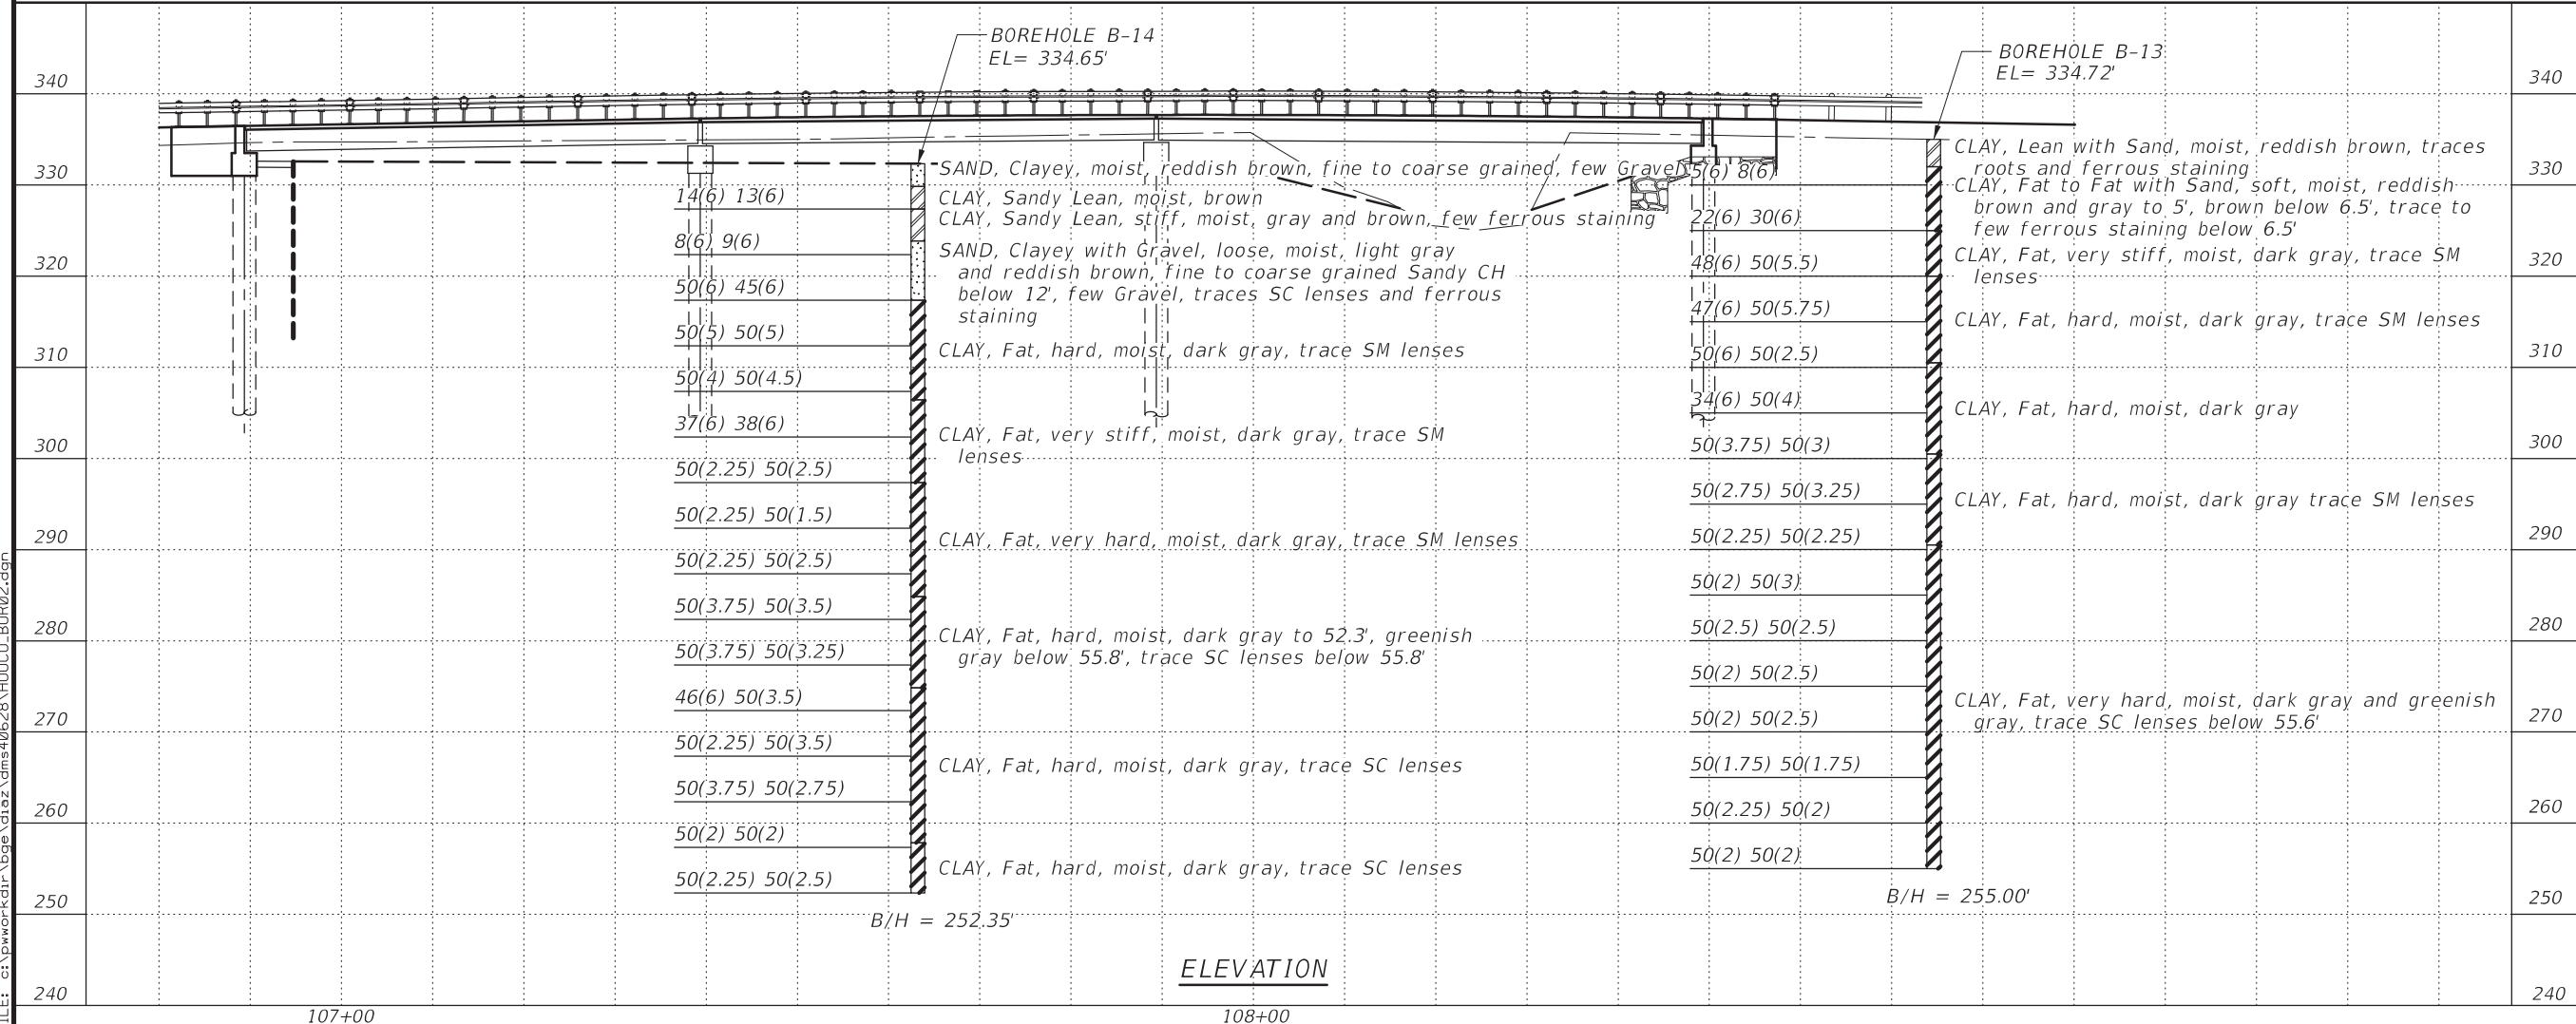 BOREHOLE B-14
EL= 334.65'
BOREHOLE B-13
EL= 334.72'
340
330
320
310
300
290
280
270
260
250
240
14(6) 13(6)
8(6) 9(6)
50(6) 45(6)
50(5) 50(5)
50(4) 50(4.5)
37(6) 38(6)
50(2.25) 50(2.5)
50(2.25) 50(1.5)
50(2.25) 50(2.5)
50(3.75) 50(3.5)
50(3.75) 50(3.25)
46(6) 50(3.5)
50(2.25) 50(3.5)
50(3.75) 50(2.75)
50(2) 50(2)
50(2.25) 50(2.5)
SAND, Clayey, moist, reddish brown, fine to coarse grained, few Gravel
CLAY, Sandy Lean, moist, brown
CLAY, Sandy Lean, stiff, moist, gray and brown, few ferrous staining
SAND, Clayey with Gravel, loose, moist, light gray
and reddish brown, fine to coarse grained Sandy CH
below 12', few Gravel, traces SC lenses and ferrous
staining
CLAY, Fat, hard, moist, dark gray, trace SM lenses
CLAY, Fat, very stiff, moist, dark gray, trace SM
lenses
CLAY, Fat, very hard, moist, dark gray, trace SM lenses
CLAY, Fat, hard, moist, dark gray to 52.3', greenish
gray below 55.8', trace SC lenses below 55.8'
CLAY, Fat, hard, moist, dark gray, trace SC lenses
CLAY, Fat, hard, moist, dark gray, trace SC lenses
B/H = 252.35'
5(6) 8(6)
22(6) 30(6)
48(6) 50(5.5)
47(6) 50(5.75)
50(6) 50(2.5)
34(6) 50(4)
50(3.75) 50(3)
50(2.75) 50(3.25)
50(2.25) 50(2.25)
50(2) 50(3)
50(2.5) 50(2.5)
50(2) 50(2.5)
50(2) 50(2.5)
50(1.75) 50(1.75)
50(2.25) 50(2)
50(2) 50(2)
CLAY, Lean with Sand, moist, reddish brown, traces
roots and ferrous staining
CLAY, Fat to Fat with Sand, soft, moist, reddish
brown and gray to 5', brown below 6.5', trace to
few ferrous staining below 6.5'
CLAY, Fat, very stiff, moist, dark gray, trace SM
lenses
CLAY, Fat, hard, moist, dark gray, trace SM lenses
CLAY, Fat, hard, moist, dark gray
CLAY, Fat, hard, moist, dark gray trace SM lenses
CLAY, Fat, very hard, moist, dark gray and greenish
gray, trace SC lenses below 55.6'
B/H = 255.00'
340
330
320
310
300
290
280
270
260
250
240
ELEVATION
107+00
108+00